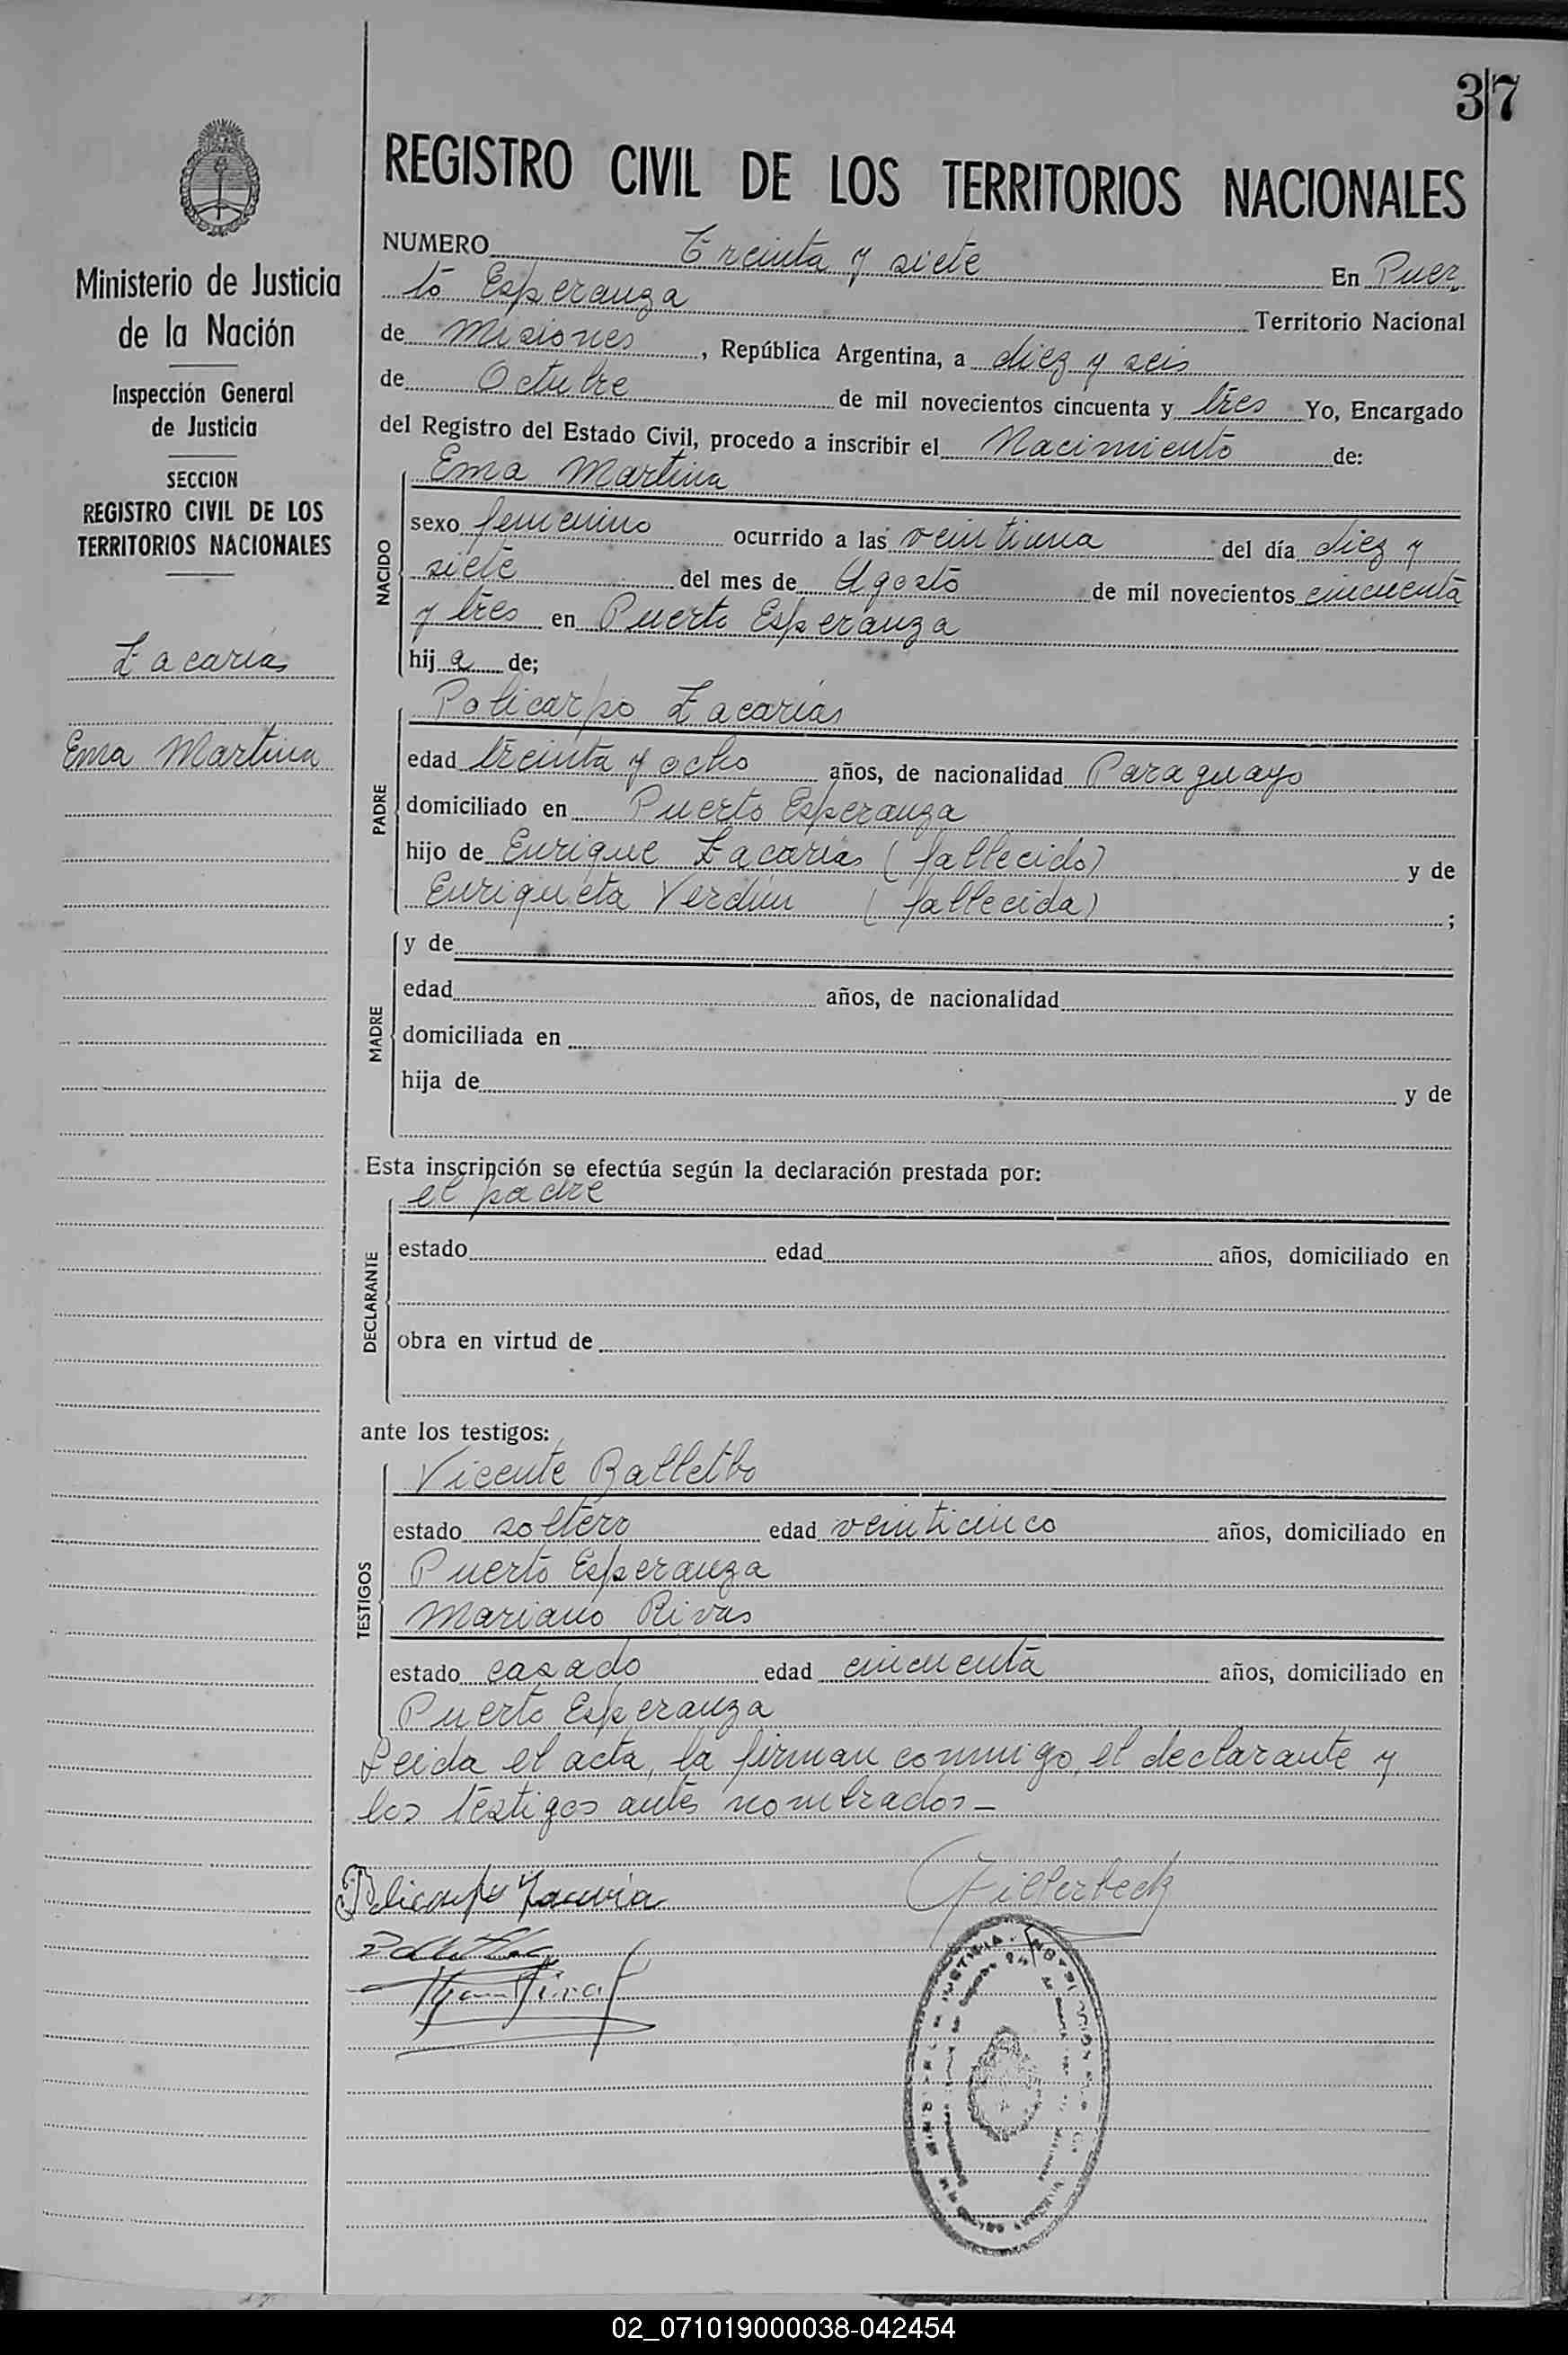 37
REGISTRO CIVIL DE LOS TERRITORIOS NACIONALES
Ministerio de Justicia
de la Nación
Inspección General
de Justicia
SECCION
REGISTRO CIVIL DE LOS
TERRITORIOS NACIONALES
Zacarías
Ema Martina
NUMERO Treinta y siete En Puer
to Esperanza Territorio Nacional
de Misiones, República Argentina, a diez y seis
de Octubre de mil novecientos cincuenta y tres Yo, Encargado
del Registro del Estado Civil, procedo a inscribir el Nacimiento de:
NACIDO
Ema Martina
sexo femenino ocurrido a las veintiuna del día diez y
siete del mes de Agosto de mil novecientos cincuenta
y tres en Puerto Esperanza
hij a de;
PADRE
Policarpo Zacarías
edad treinta y ocho años, de nacionalidad Paraguayo
domiciliado en Puerto Esperanza
hijo de Enrique Zacarías (fallecido) y de
Enriqueta Verdun (fallecida) ;
MADRE
y de
edad años, de nacionalidad
domiciliada en
hija de y de
Esta inscripción se efectúa según la declaración prestada por:
DECLARANTE
el padre
estado edad años, domiciliado en
obra en virtud de
ante los testigos:
TESTIGOS
Vicente Balletbo
estado soltero edad veinticinco años, domiciliado en
Puerto Esperanza
Mariano Rivas
estado casado edad cincuenta años, domiciliado en
Puerto Esperanza
Leida el acta, la firman conmigo, el declarante y
los testigos antes nombrados-
02_071019000038-042454